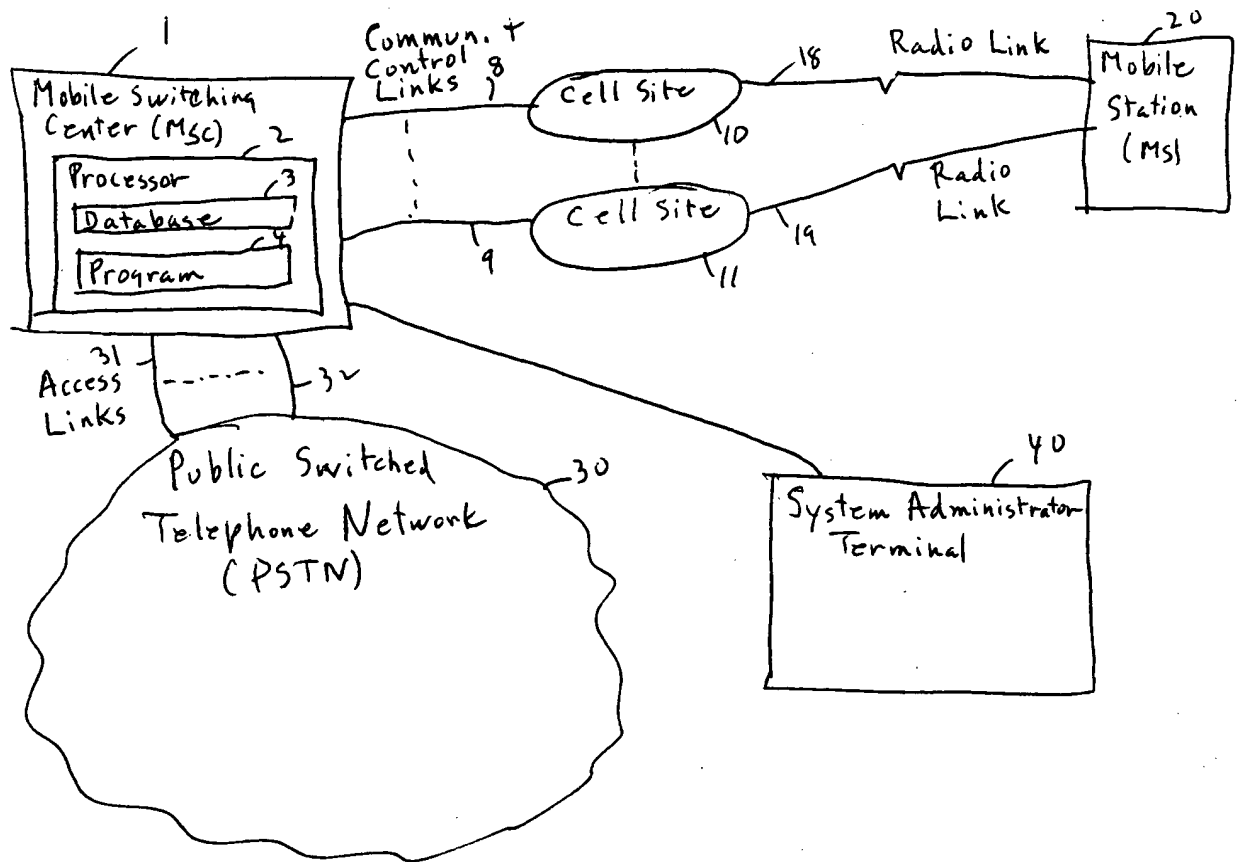 1
Mobile Switching
Center (MSC)
2
Processor
3
Database
4
Program
Commun. +
Control
Links
8
Cell Site
10
18
Radio Link
20
Mobile
Station
(MS)
9
Cell Site
11
19
Radio
Link
31
Access
Links
32
Public Switched
Telephone Network
(PSTN)
30
40
System Administrator
Terminal